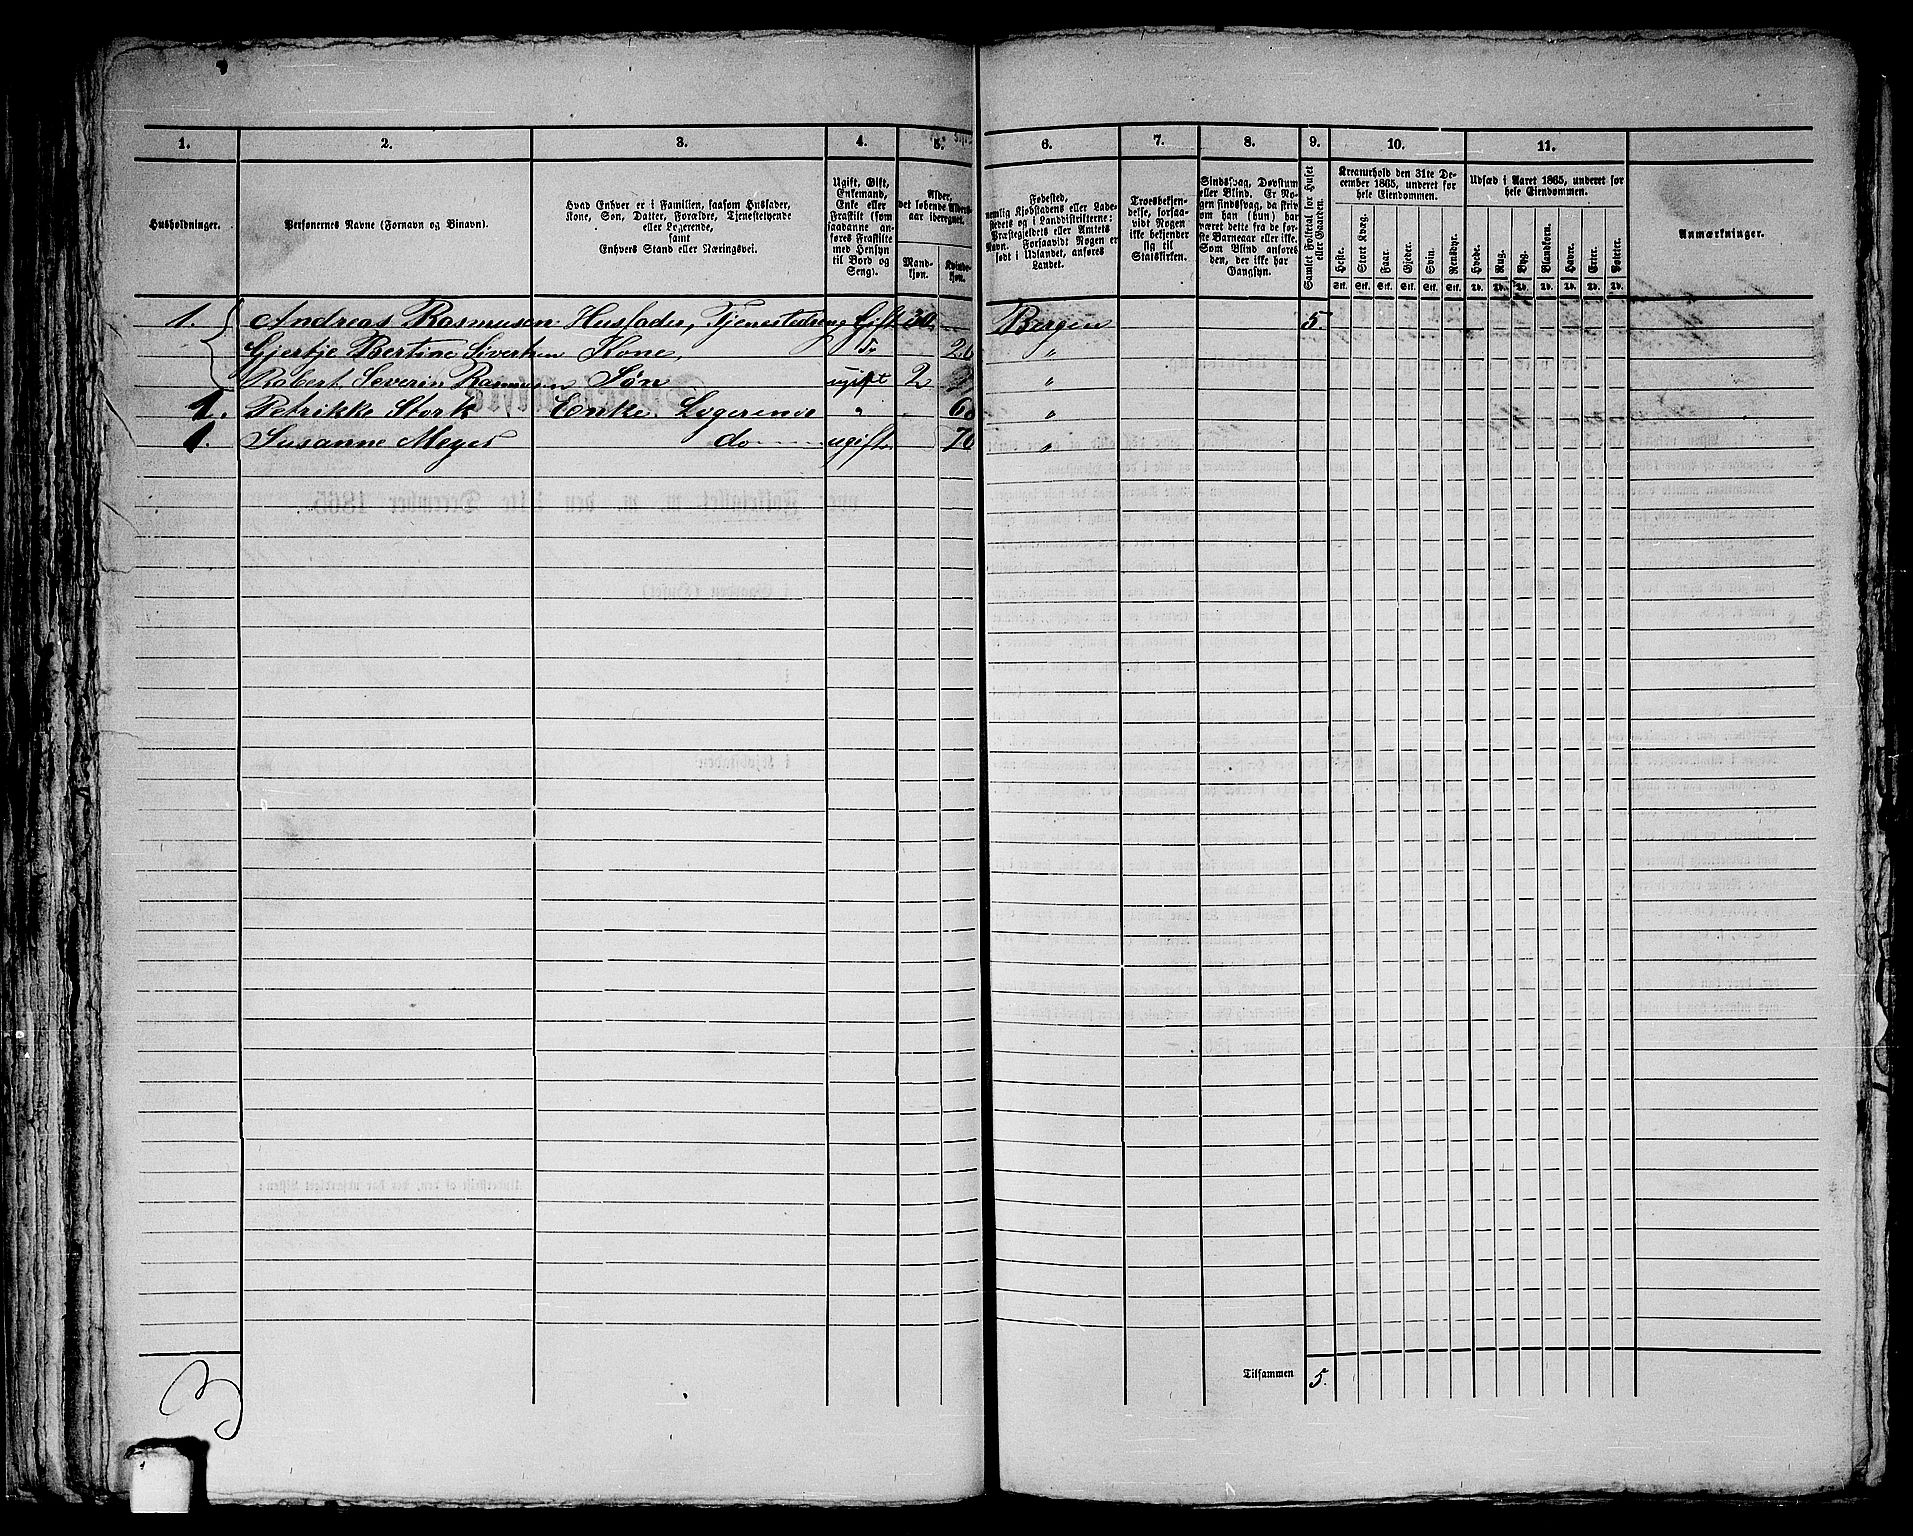 1. 2. 3. 4. 5. 6. 7. 8. 9. 10. 11.
Husholdninger.
Personernes Navne (Fornavn og Binavn).
Hvad Enhver er i Familien, saasom Husfader,
Kone, Søn, Datter, Forældre, Tjenestetyende
eller Logerende,
samt
Enhvers Stand eller Næringsvei.
Ugift, Gift,
Enkemand,
Enke eller
Fraskilt (som
saadanne an-
føres Fraskilte
med Hensyn
til Bord og
Seng).
Alder,
det løbende Alders-
aar iberegnet.
Mand-
kjøn.
Kvinde-
kjøn.
Fødested,
nemlig Kjøbstadens eller Lade-
stedets og i Landdistrikterne:
Præstegjeldets eller Amtets
Navn. Forsaavidt Nogen er
født i Udlandet, anføres
Landet.
Troesbekjen-
delse, forsaa-
vidt Nogen
ikke bekjender
sig til
Statskirken.
Sindssvag, Døvstum
eller Blind. Er No-
gen sindssvag, da skriv
om han (hun) har
været dette fra de før-
ste Barneaar eller ikke.
Som Blind anføres
den, der ikke har
Gangsyn.
Samlet Folketal for Huset
eller Gaarden.
Kreaturhold den 31te De-
cember 1865, underet for
hele Eiendommen.
Heste. Stort Kvæg. Faar. Gjeder. Svin. Rensdyr.
Stk. Stk. Stk. Stk. Stk. Stk.
Udsæd i Aaret 1865, underet for
hele Eiendommen.
Hvede. Rug. Byg. Blandkorn. Havre. Erter. Poteter.
Td. Td. Td. Td. Td. Td. Td.
Anmærkninger.
1. Andreas Rasmusen Husfader, Tjenestedreng Gift 30. Bergen 5.
Gjertje Bertine Sivertsen Kone, 26 "
Robert Severin Rasmusen Søn ugift 2 "
1. Petrikke Stork Enke, Logerende " "
1. Susanne Meyer do ugift. 70 "
Tilsammen 5.
3